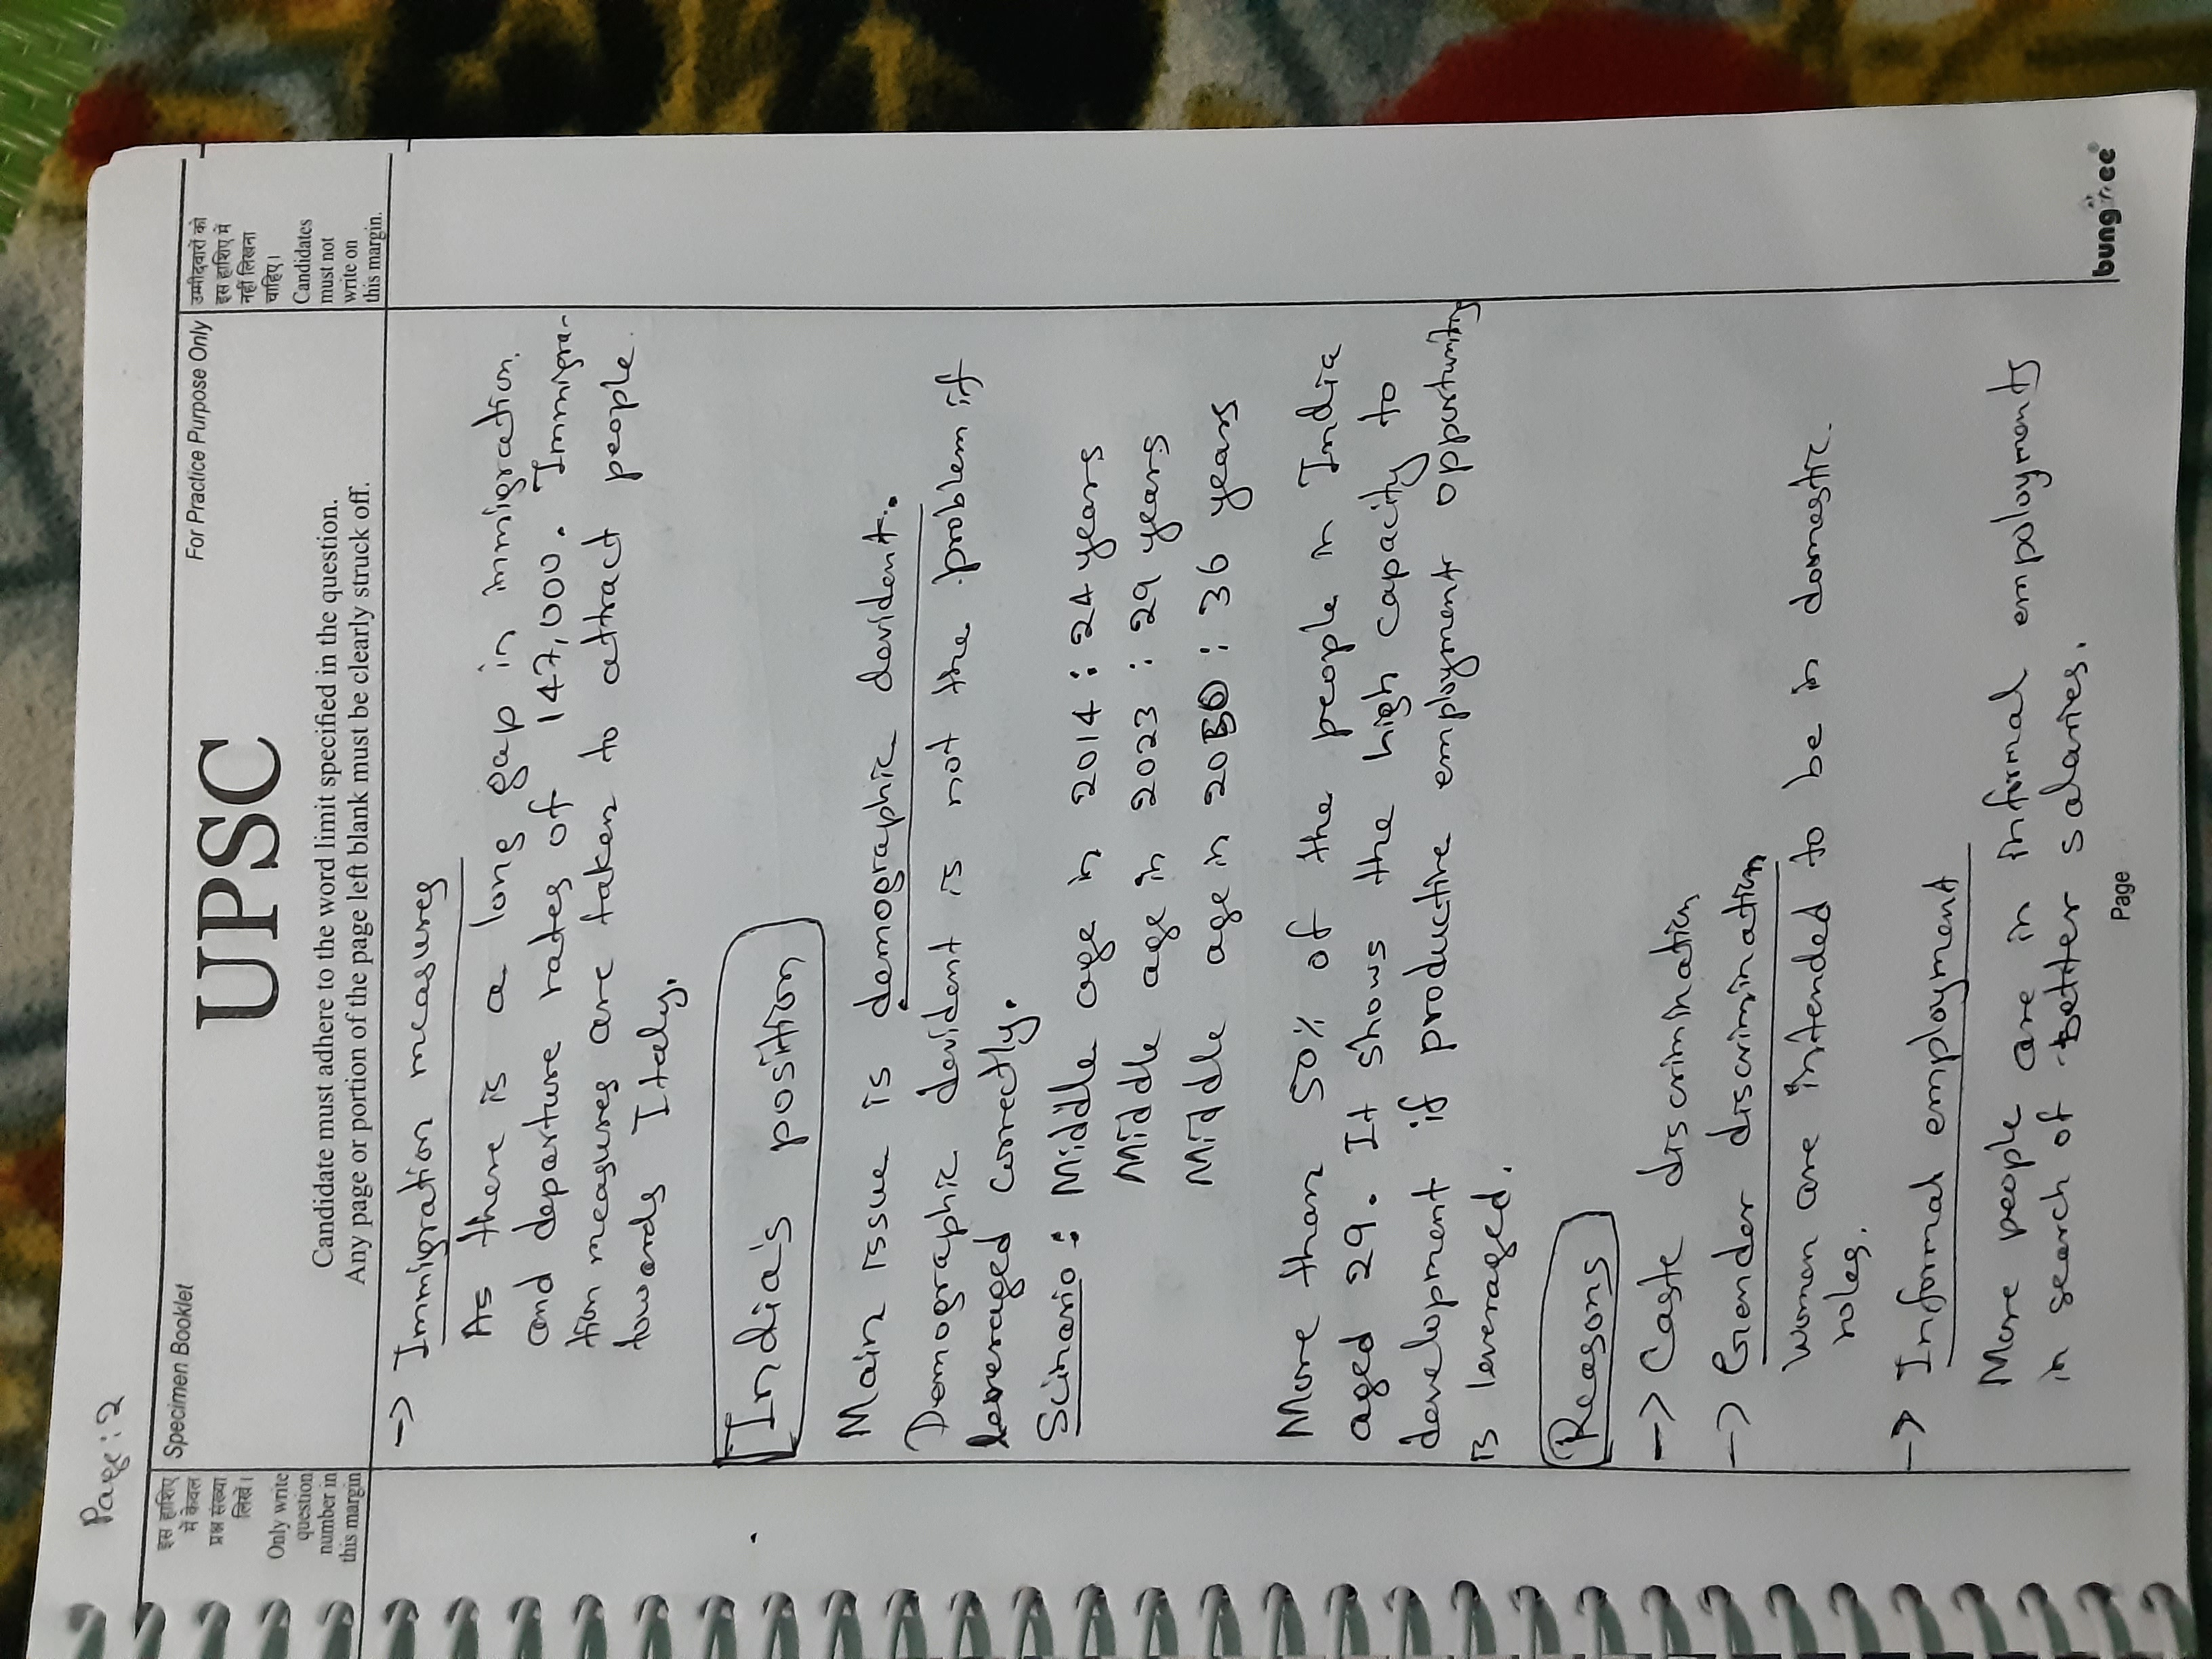 Page: 2
इस हाशिए
में केवल
प्रश्न संख्या
लिखें।
Only write
question
number in
this margin
Specimen Booklet
For Practice Purpose Only
UPSC
Candidate must adhere to the word limit specified in the question.
Any page or portion of the page left blank must be clearly struck off.
उम्मीदवारों को
इस हाशिए में
नहीं लिखना
चाहिए।
Candidates
must not
write on
this margin.
-> Immigration measures
As there is a long gap in immigration
and departure rates of 147,000. Immigra-
tion measures are taken to attract people
towards Italy.
India's position
Main issue is demographic devident.
Demographic devident is not the problem if
leveraged correctly.
Scinario: Middle age in 2014 : 24 years
Middle age in 2023 : 29 years
Middle age in 2030 : 36 years
More than 50% of the people in India
aged 29. It shows the high capacity to
development if productive employment opportunity
is leveraged.
Reasons
-> Caste discrimination
-> Gender discrimination
Women are intended to be in domestic
roles.
-> Informal employment
More people are in informal employments
in search of better salaries.
Page
bungree®